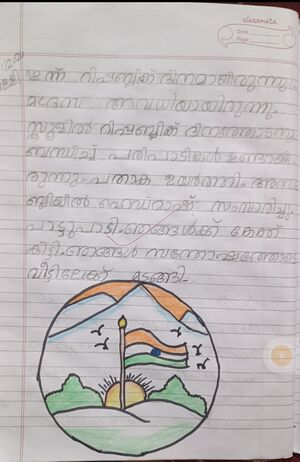 classmate
Date
Page
ഇന്ന് റിപബ്ലിക് ദിനമായിരുന്നു.
മദ്രസ അവധിയായിരുന്നു.
സ്കൂളിൽ റിപബ്ലിക് ദിനത്തോടനു
ബന്ധിച്ച് പരിപാടികൾ ഉണ്ടായി
രുന്നു. പതാക ഉയർത്തി. അസം
ബ്ലിയിൽ ഹെഡ്മാഷ് സംസാരിച്ചു.
പാട്ടുപാടി. ഞങ്ങൾക്ക് കേക്ക്
കിട്ടി. ഞങ്ങൾ സന്തോഷത്തോടെ
വീട്ടിലേക്ക് മടങ്ങി.